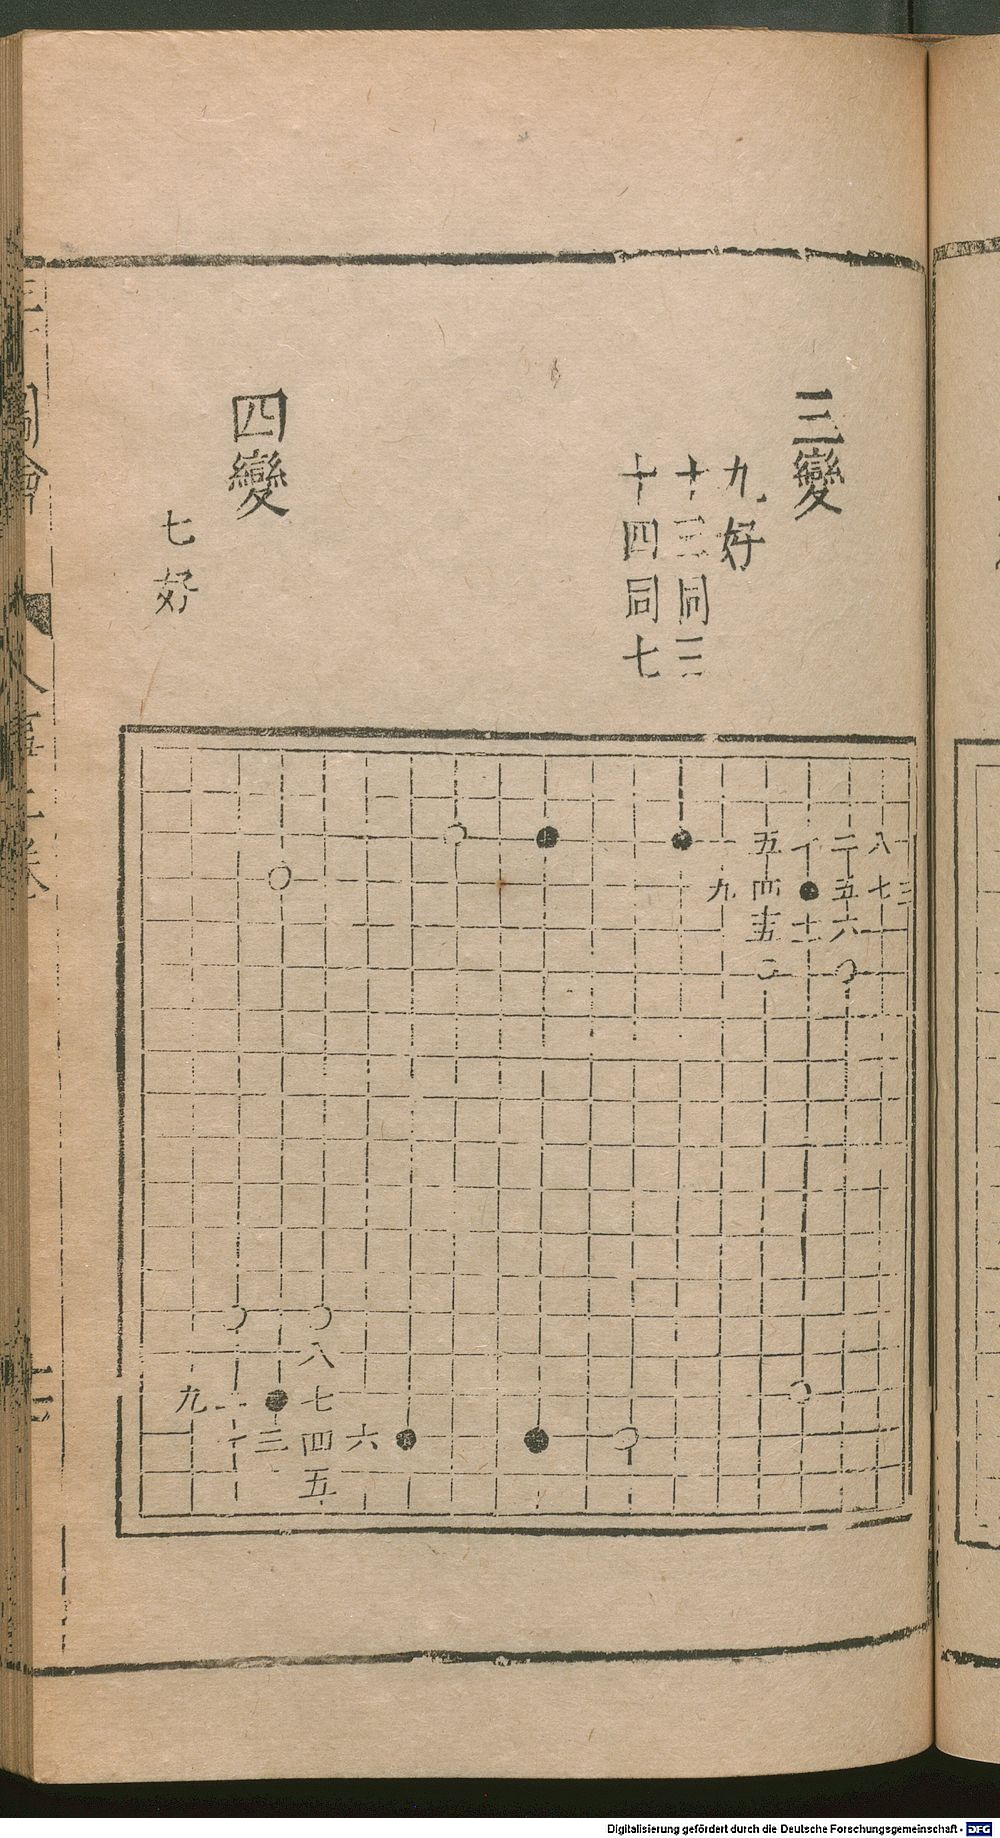 三變
九好
十三同三
十四同七
四變
七好
五 一 二 八
九 四 五 七
十 六
八
九 二 七
一 三 四 六
五
圖會
人事
Digitalisierung gefördert durch die Deutsche Forschungsgemeinschaft - DFG